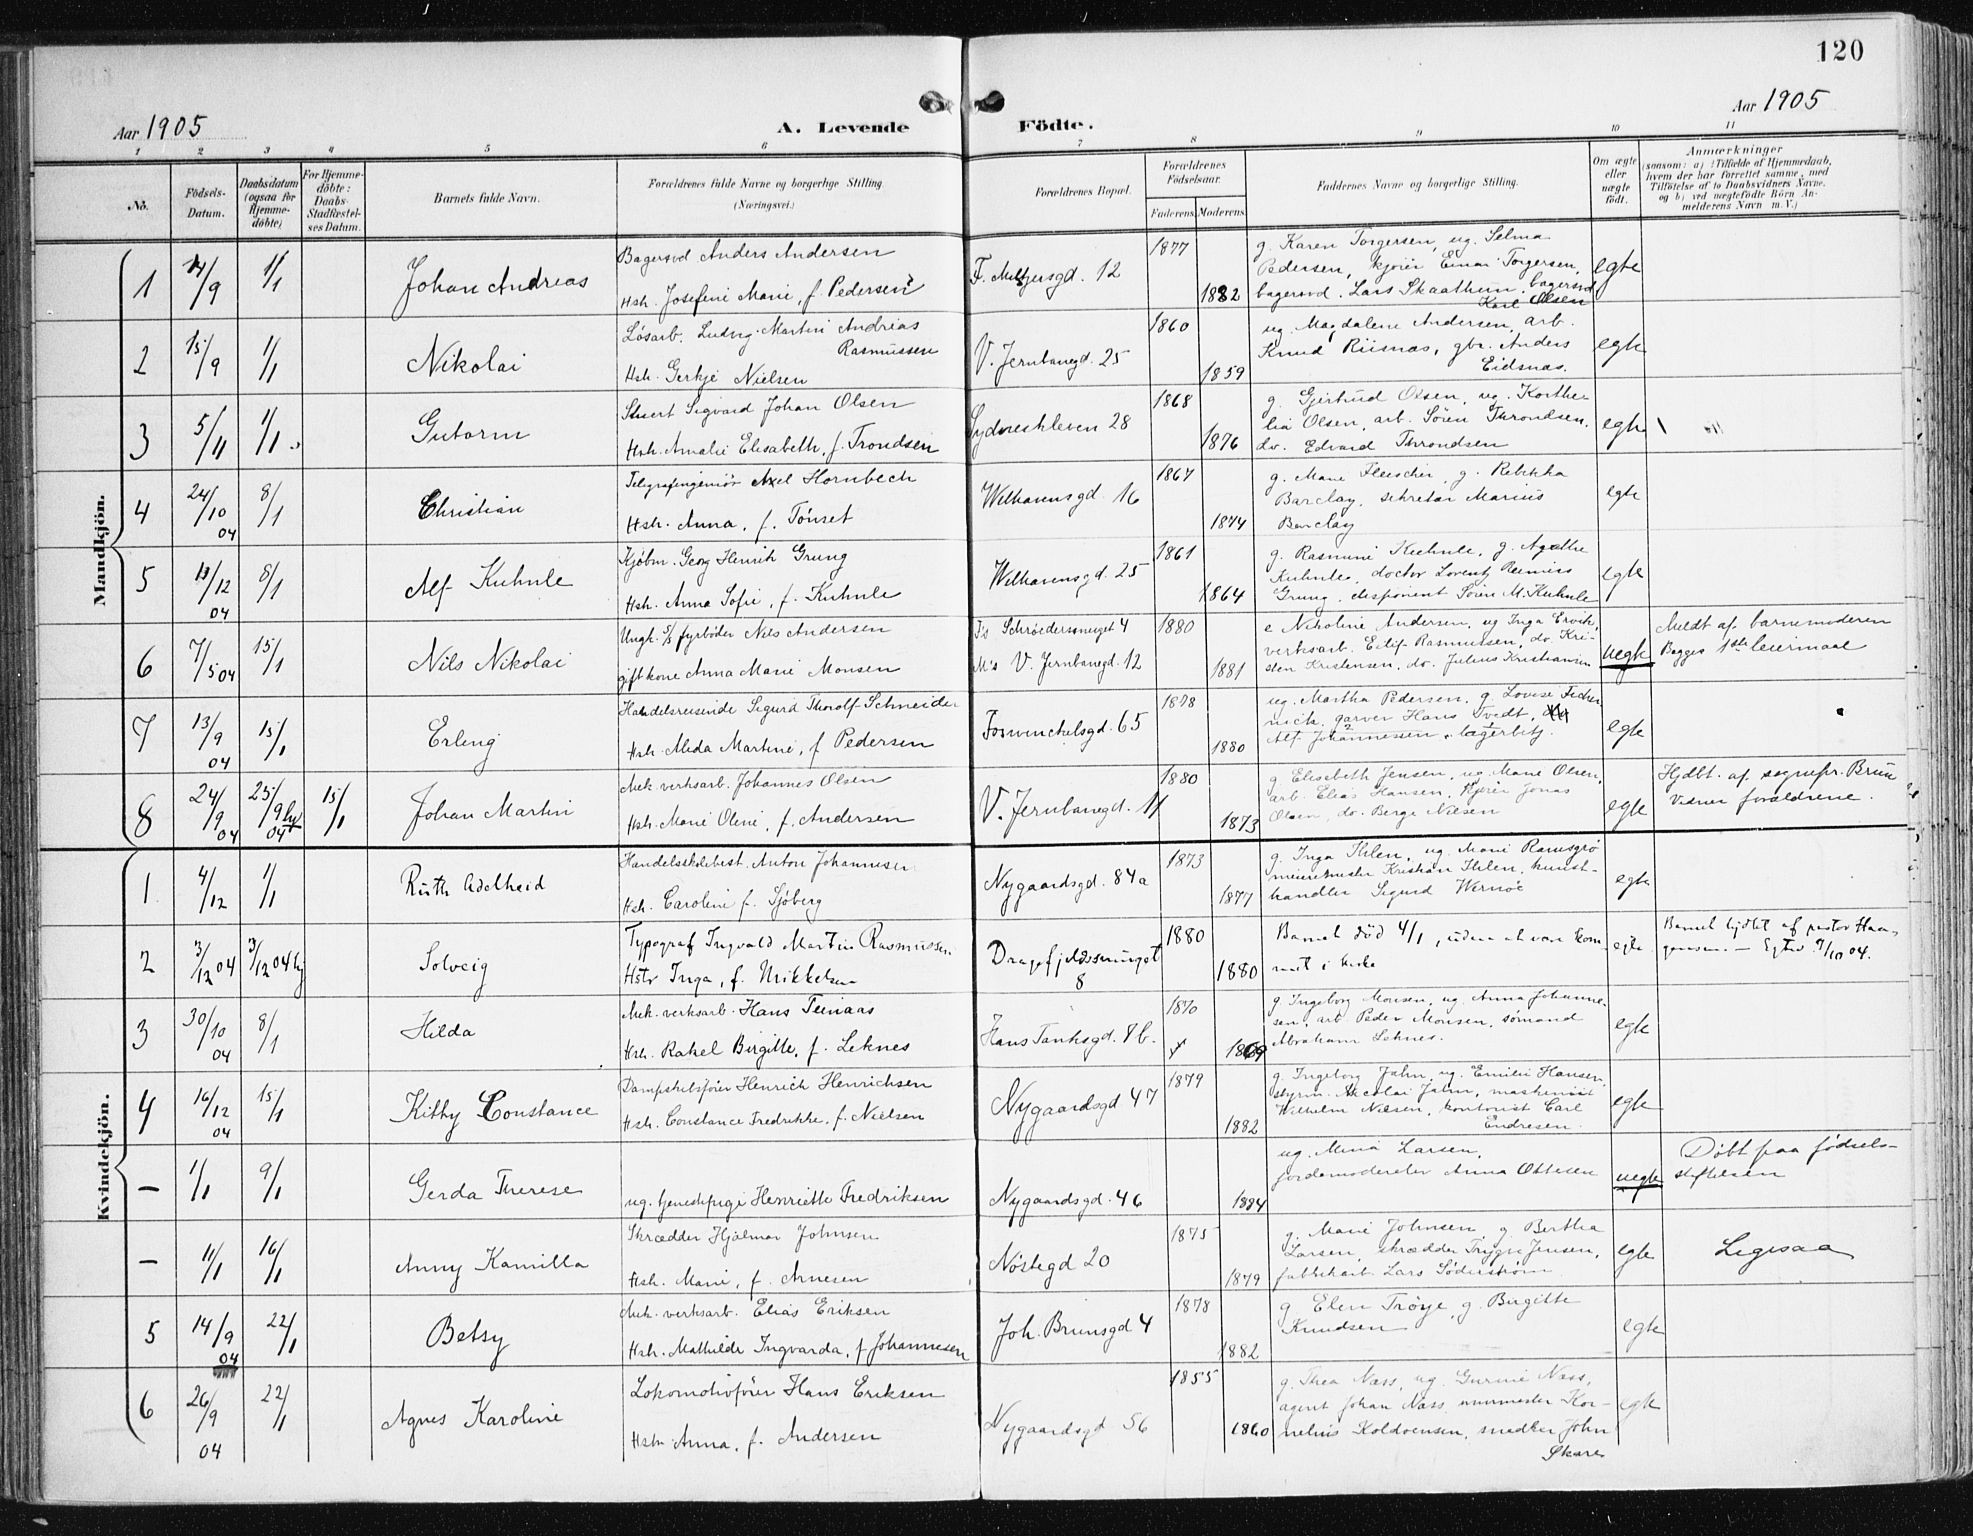 120
Aar 1905
Aar 1905
A. Levende Födte.
1 2 3 4 5 6 7 8 9 10 11
No.
Födsels-Datum.
Daabsdatum (ogsaa for Hjemme-döbte)
For Hjemme-döbte: Daabs Stadfæstel-ses Datum.
Barnets fulde Navn.
Forældrenes fulde Navne og borgerlige Stilling.
(Næringsvei.)
Forældrenes Bopæl.
Forældrenes Födselsaar.
Faderens. Moderens.
Faddernes Navne og borgerlige Stilling.
Om ægte eller uægte födt.
Anmærkninger
(saasom: a) i Tilfælde af Hjemmedaab, hvem der har forrettet samme, med Tilföielse af to Daabsvidners Navne, og b) ved uægtefödte Börn An-melderens Navn m. V.)
Mandkjön.
1 14/9 1/1 Johan Andreas
Bagersvd Anders Andersen
Hstr. Josefine Marie, f. Pedersen
12 1877 1882
g. Karen Torgersen, ug. Selma
Pedersen, kjører Einar Torgersen,
bagersvd. Lars Skaathun, bagersvd
Karl Olsen
egte
2 15/9 1/1 Nikolai
Løsarb. Ludvig Martin Andreas
Rasmussen
Hstr. Gerkje Nielsen
V. Jernbanegd. 25 1860 1859
ug. Magdalene Andersen, arb.
Knud Riisnæs, gbr. Anders
Eidsnæs.
egte
3 5/11 1/1 Gutorm
Sigvard Johan Olsen
Hstr. Amalie Elisabeth, f. Trondsen
Sydneskleven 28 1868 1876
g. Gjertrud Olsen, ug. Korthe-
lia Olsen, arb. Søren Throndsen,
do. Edvard Throndsen
egte
4 24/10 04 8/1 Christian
Telegrafingeniør Axel Hornbech
Hstr. Anna, f. Tönset
Welhavensgd. 16 1867 1874
g. Marie Fleischer, g. Rebekka
Barclay, sekretær Marius
Barclay
egte
5 13/12 04 8/1 Alf Kuhnle
Kjøbm. Georg Henrik Grung
Hstr. Anna Sofie, f. Kuhnle
Welhavensgd. 25 1861 1864
g. Rasmine Kuhnle, g. Agathe
Kuhnle, doctor Lorentz
Grung, disponent Sören M. Kuhnle
egte
6 7/5 04 15/1 Nils Nikolai
Ungk. fyrbøder Nils Andersen
gift kone Anna Marie Monsen
F's Schrøedersmuget 4
M's V. Jernbanegd. 12
1880 1881
e Nikoline Andersen, ug Inga Ervik,
verksarb. Eilif Rasmussen, do. Kri-
sten Kristensen, do. Julius Kristiansen
uegte
Meldt af barnemoderen
Begges 1ste leiermaal
7 13/9 04 15/1 Erling
Handelsreisende Sigurd Thorolf Schneider
Hstr. Alida Martine, f Pedersen
Fosswinckelsgd. 65 1878 1880
ug. Martha Pedersen, g. Lovise
garver Hans Tvedt,
Alf Johannessen, lagerbetj.
egte
8 24/9 04 25/9 04 15/1 Johan Martin
Mek. verksarb. Johannes Olsen
Hstr. Marie Oline, f. Andersen
V. Jernbanegd. 11 1880 1873
g. Elisabeth Jensen, ug. Marie Olsen,
arb. Elias Hansen, kjører Jonas
Olsen, do. Berge Nielsen
egte
Hjdbt. af sognepr. Brun
Vidner forældrene.
Kvindekjön.
1 4/12 1/1 Ruth Adelheid
Handelsbetjent Anton Johannesen
Hstr. Caroline f. Sjöberg
Nygaardsgd. 84a 1873 1877
g. Inga Ihlen, ug. Marie Ramsgrø
meierimester Kristian Ihlen, kunst-
handler Sigurd Wernøe
egte
2 3/12 04 3/12 04 hj Solveig
Typograf Ingvald Martin Rasmussen
Hstr Inga, f. Mikkelsen
Dragefjeldssmuget 8 1880 1880
Barnet död 4/1, uden at være kom-
met i kirke
egte
Barnet hjdbt af pastor Haa-
gensen. — Egtev. 9/10 04.
3 30/10 04 8/1 Hilda
Mek. verksarb. Hans Teinaas
Hstr. Rakel Birgitte, f. Leknes
Hans Tanksgd. 1b. 1870 1869
g. Ingeborg Monsen, ug. Anna Johanne-
sen, arb. Peder Monsen, sömand
Abraham Leknes.
egte
4 16/12 04 15/1 Kitty Constance
Dampskibsfører Henrich Henrichsen
Hstr. Constance Fredrikke, f. Nielsen
Nygaardsgd 47 1879 1882
g. Ingeborg Jahn, ug. Emilie Hansen,
styrm. Nicolai Jahn, maskinist
Wilhelm Nielsen, kontorist Carl
Endresen.
egte
— 1/1 9/1 Gerda Therese
ug. tjenestepige Henriette Fredriksen
Nygaardsgd. 46 1884
ug. Mina Larsen,
jordemoderelev Anna Ottesen
uegte
Döbt paa födsels-
stiftelsen
— 11/1 16/1 Anny Kamilla
Skrædder Hjalmar Johnsen
Hstr. Marie, f. Arnesen
Nöstegd 20 1875 1879
g. Marie Johnsen, g Bertha
Larsen, skrædder Trygve Jensen,
fabrikarb. Lars Söderström
egte
Ligesaa
5 14/9 04 22/1 Betsy
Mek. verksarb. Elias Eriksen
Hstr. Mathilde Ingvarda, f Johannesen
Joh. Brunsgd 4 1878 1882
g Elen Tröye, g. Birgitte
Knudsen
egte
6 26/9 04 22/1 Agnes Karoline
Lokomotivfører Hans Eriksen
Hstr. Anna, f. Andersen
Nygaardsgd 56 1855 1860
g. Thea Næss, ug. Gurine Næss,
agent Johan Næss, murmester Kor-
nelius Koldvensen, snedker John
Skare
egte